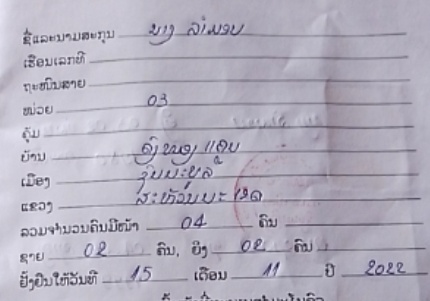 ຊື່ແລະນາມສະກຸນ ນາງ ລຳພອນ
ເຮືອນເລກທີ
ຖະໜົນສາຍ
ໜ່ວຍ 03
ຄຸ້ມ
ບ້ານ
ເມືອງ
ແຂວງ ສະຫວັນນະເຂດ
ລວມຈຳນວນຄົນມີໜ້າ 04 ຄົນ
ຊາຍ 02 ຄົນ, ຍິງ 02 ຄົນ
ຢັ້ງຢືນໃຫ້ວັນທີ 15 ເດືອນ 11 ປີ 2022